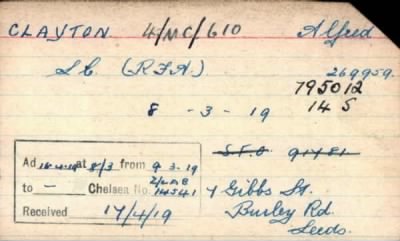 CLAYTON 4/MC/610 Alfred
S.C. (R.F.A.) 269959.
795012
14 S
8 - 3 - 19
S.F.O. 91781
Ad 16-4-19 at 8/3 from 9-3-19
to - Chelsea No. 14541
Received 17/4/19
7 Gibbs St.
Burley Rd.
Leeds.